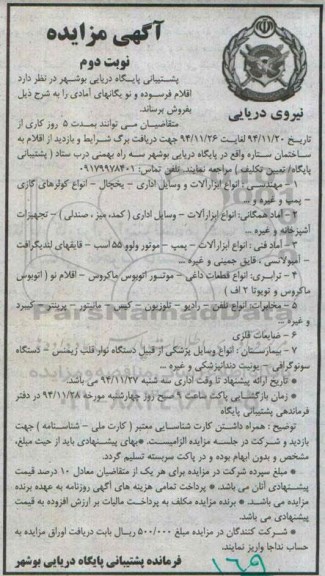 آگهی مزایده
نوبت دوم
نیروی دریایی
پشتیبانی پایگاه دریایی بوشهر در نظر دارد
اقلام فرسوده و نو یگانهای آمادی را به شرح ذیل
بفروش برساند.
متقاضیان می توانند بمدت ۵ روز کاری از
تاریخ ۹۴/۱۱/۲۰ لغایت ۹۴/۱۱/۲۶ جهت دریافت برگ شرایط و بازدید از اقلام به
ساختمان ستاره واقع در پایگاه دریایی بوشهر سه راه بهمنی درب ستاد ( پشتیبانی
پایگاه/ تعیین تکلیف ) مراجعه نمایند. تلفن تماس: ۰۹۱۷۹۹۷۸۴۰۱
۱ – مهندسی : انواع ابزارآلات – وسایل اداری – یخچال – انواع کولرهای گازی
– پمپ و غیره و ...
۲ – آماد همگانی: انواع ابزارآلات – وسایل اداری ( کمد، میز ، صندلی ) – تجهیزات
آشپزخانه و غیره ...
۳ – آماد فنی : انواع ابزارآلات – پمپ – موتور ولوو ۵۵ اسب – قایقهای لندیگرافت
– آمبولانسی ، قایق جمینی و غیره ...
۴ – ترابری: انواع قطعات داغی – موتور اتوبوس ماکروس – اقلام نو ( اتوبوس
ماکروس و تویوتا ۲ اف )
۵ – مخابرات: انواع تلفن – رادیو – تلوزیون – کیس – مانیتور – پرینتر – کیبرد
و غیره ...
ParsNamadData
۶ – ضایعات فلزی
۷ – بیمارستان : انواع وسایل پزشکی از قبیل دستگاه نوار قلب زیمنس – دستگاه
سونوگرافی – یونیت دندانپزشکی و غیره ...
* تاریخ ارائه پیشنهاد تا وقت اداری سه شنبه ۹۴/۱۱/۲۷ می باشد.
* زمان بازگشایی پاکت ساعت ۹ صبح روز چهارشنبه مورخه ۹۴/۱۱/۲۸ در دفتر
فرماندهی پشتیبانی پایگاه
توضیح : همراه داشتن کارت شناسایی معتبر ( کارت ملی – شناسنامه ) جهت
بازدید و شرکت در جلسه مزایده الزامیست. * بهای پیشنهادی باید از حیث مبلغ،
مشخص و بدون ابهام بوده و در پاکت سربسته تسلیم گردد.
* مبلغ سپرده شرکت در مزایده برای هر یک از متقاضیان معادل ۱۰ درصد قیمت
پیشنهادی آنان می باشد. * پرداخت تمامی هزینه های آگهی روزنامه به عهده برنده
مزایده می باشد. * برنده مزایده مکلف به پرداخت مالیات بر ارزش افزوده به قیمت
پیشنهادی می باشد.
* شرکت کنندگان در مزایده مبلغ ۵۰۰/۰۰۰ ریال بابت دریافت اوراق مزایده به
حساب نداجا واریز نمایند.
فرمانده پشتیبانی پایگاه دریایی بوشهر
۱۶۹